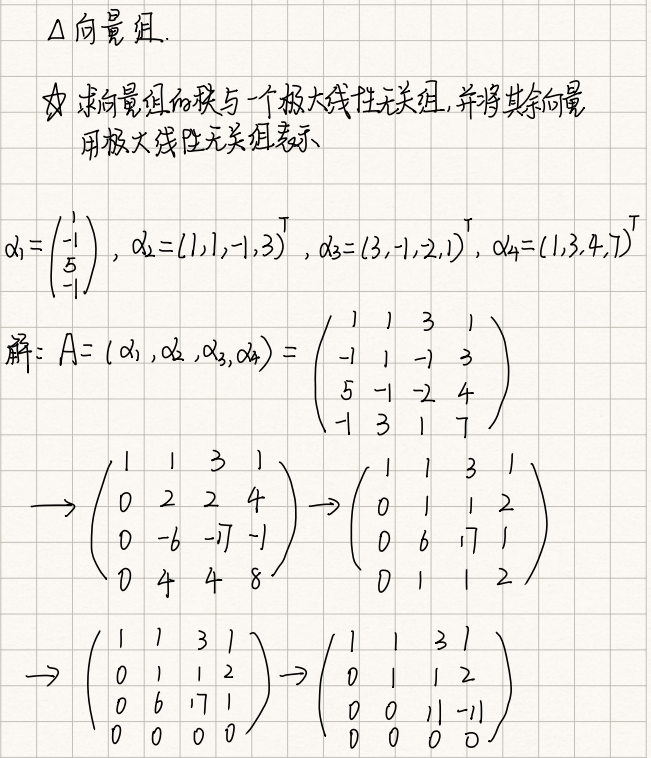 △ 向量组.
☆ 求向量组的秩与一个极大线性无关组,并将其余向量
用极大线性无关组表示
α₁=(1 -1 5 -1), α₂=(1,1,-1,3)ᵀ, α₃=(3,-1,-2,1)ᵀ, α₄=(1,3,4,7)ᵀ
解: A=(α₁,α₂,α₃,α₄)=
1 1 3 1
-1 1 -1 3
5 -1 -2 4
-1 3 1 7
→
1 1 3 1
0 2 2 4
0 -6 -17 -1
0 4 4 8
→
1 1 3 1
0 1 1 2
0 6 17 1
0 1 1 2
→
1 1 3 1
0 1 1 2
0 6 17 1
0 0 0 0
→
1 1 3 1
0 1 1 2
0 0 11 -11
0 0 0 0